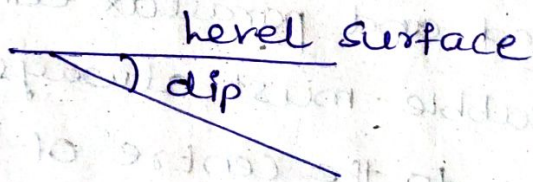 Level surface
dip